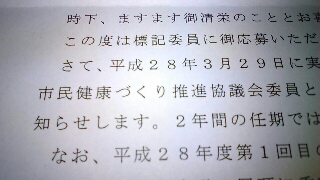 時下、ますます御清栄のこととお
この度は標記委員に御応募いただ
さて、平成28年3月29日に実
市民健康づくり推進協議会委員と
知らせします。2年間の任期では
なお、平成28年度第1回目の